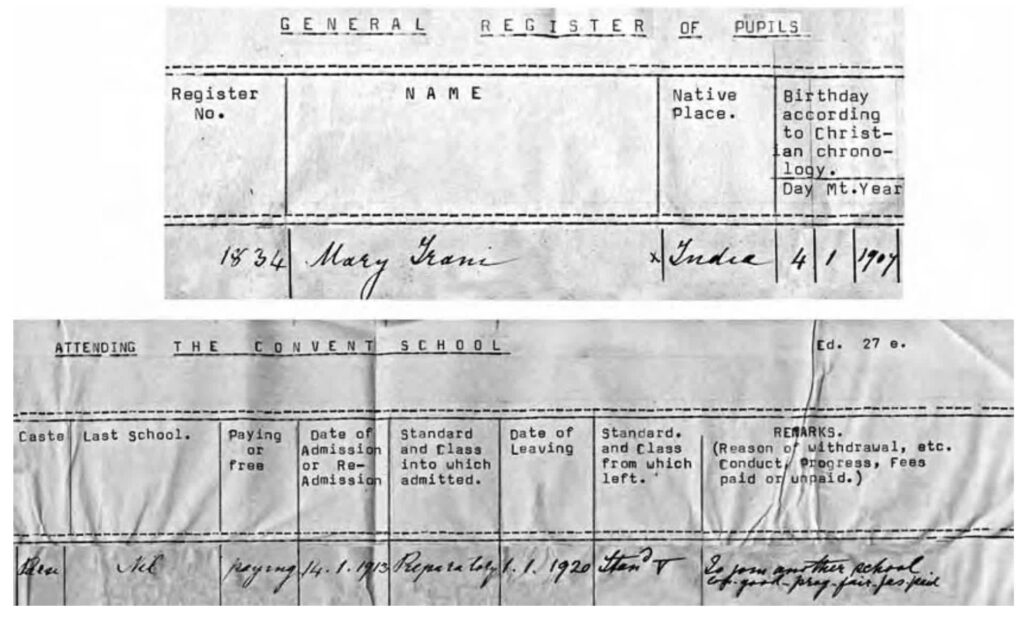 GENERAL REGISTER OF PUPILS
Register
No.
NAME
Native
Place.
Birthday
according
to Christ-
ian chrono-
logy.
Day Mt.Year
1834 Mary Irani x India 4 1 1907
ATTENDING THE CONVENT SCHOOL
Ed. 27 e.
Caste
Last School.
Paying
or
free
Date of
Admission
or Re-
Admission
Standard
and Class
into which
admitted.
Date of
Leaving
Standard.
and Class
from which
left.
REMARKS.
(Reason of withdrawal, etc.
Conduct, Progress, Fees
paid or unpaid.)
Nil paying 14.1.1913 Preparatory 1.1.1920 Stand V To join another school
good - prog - fair - fees paid